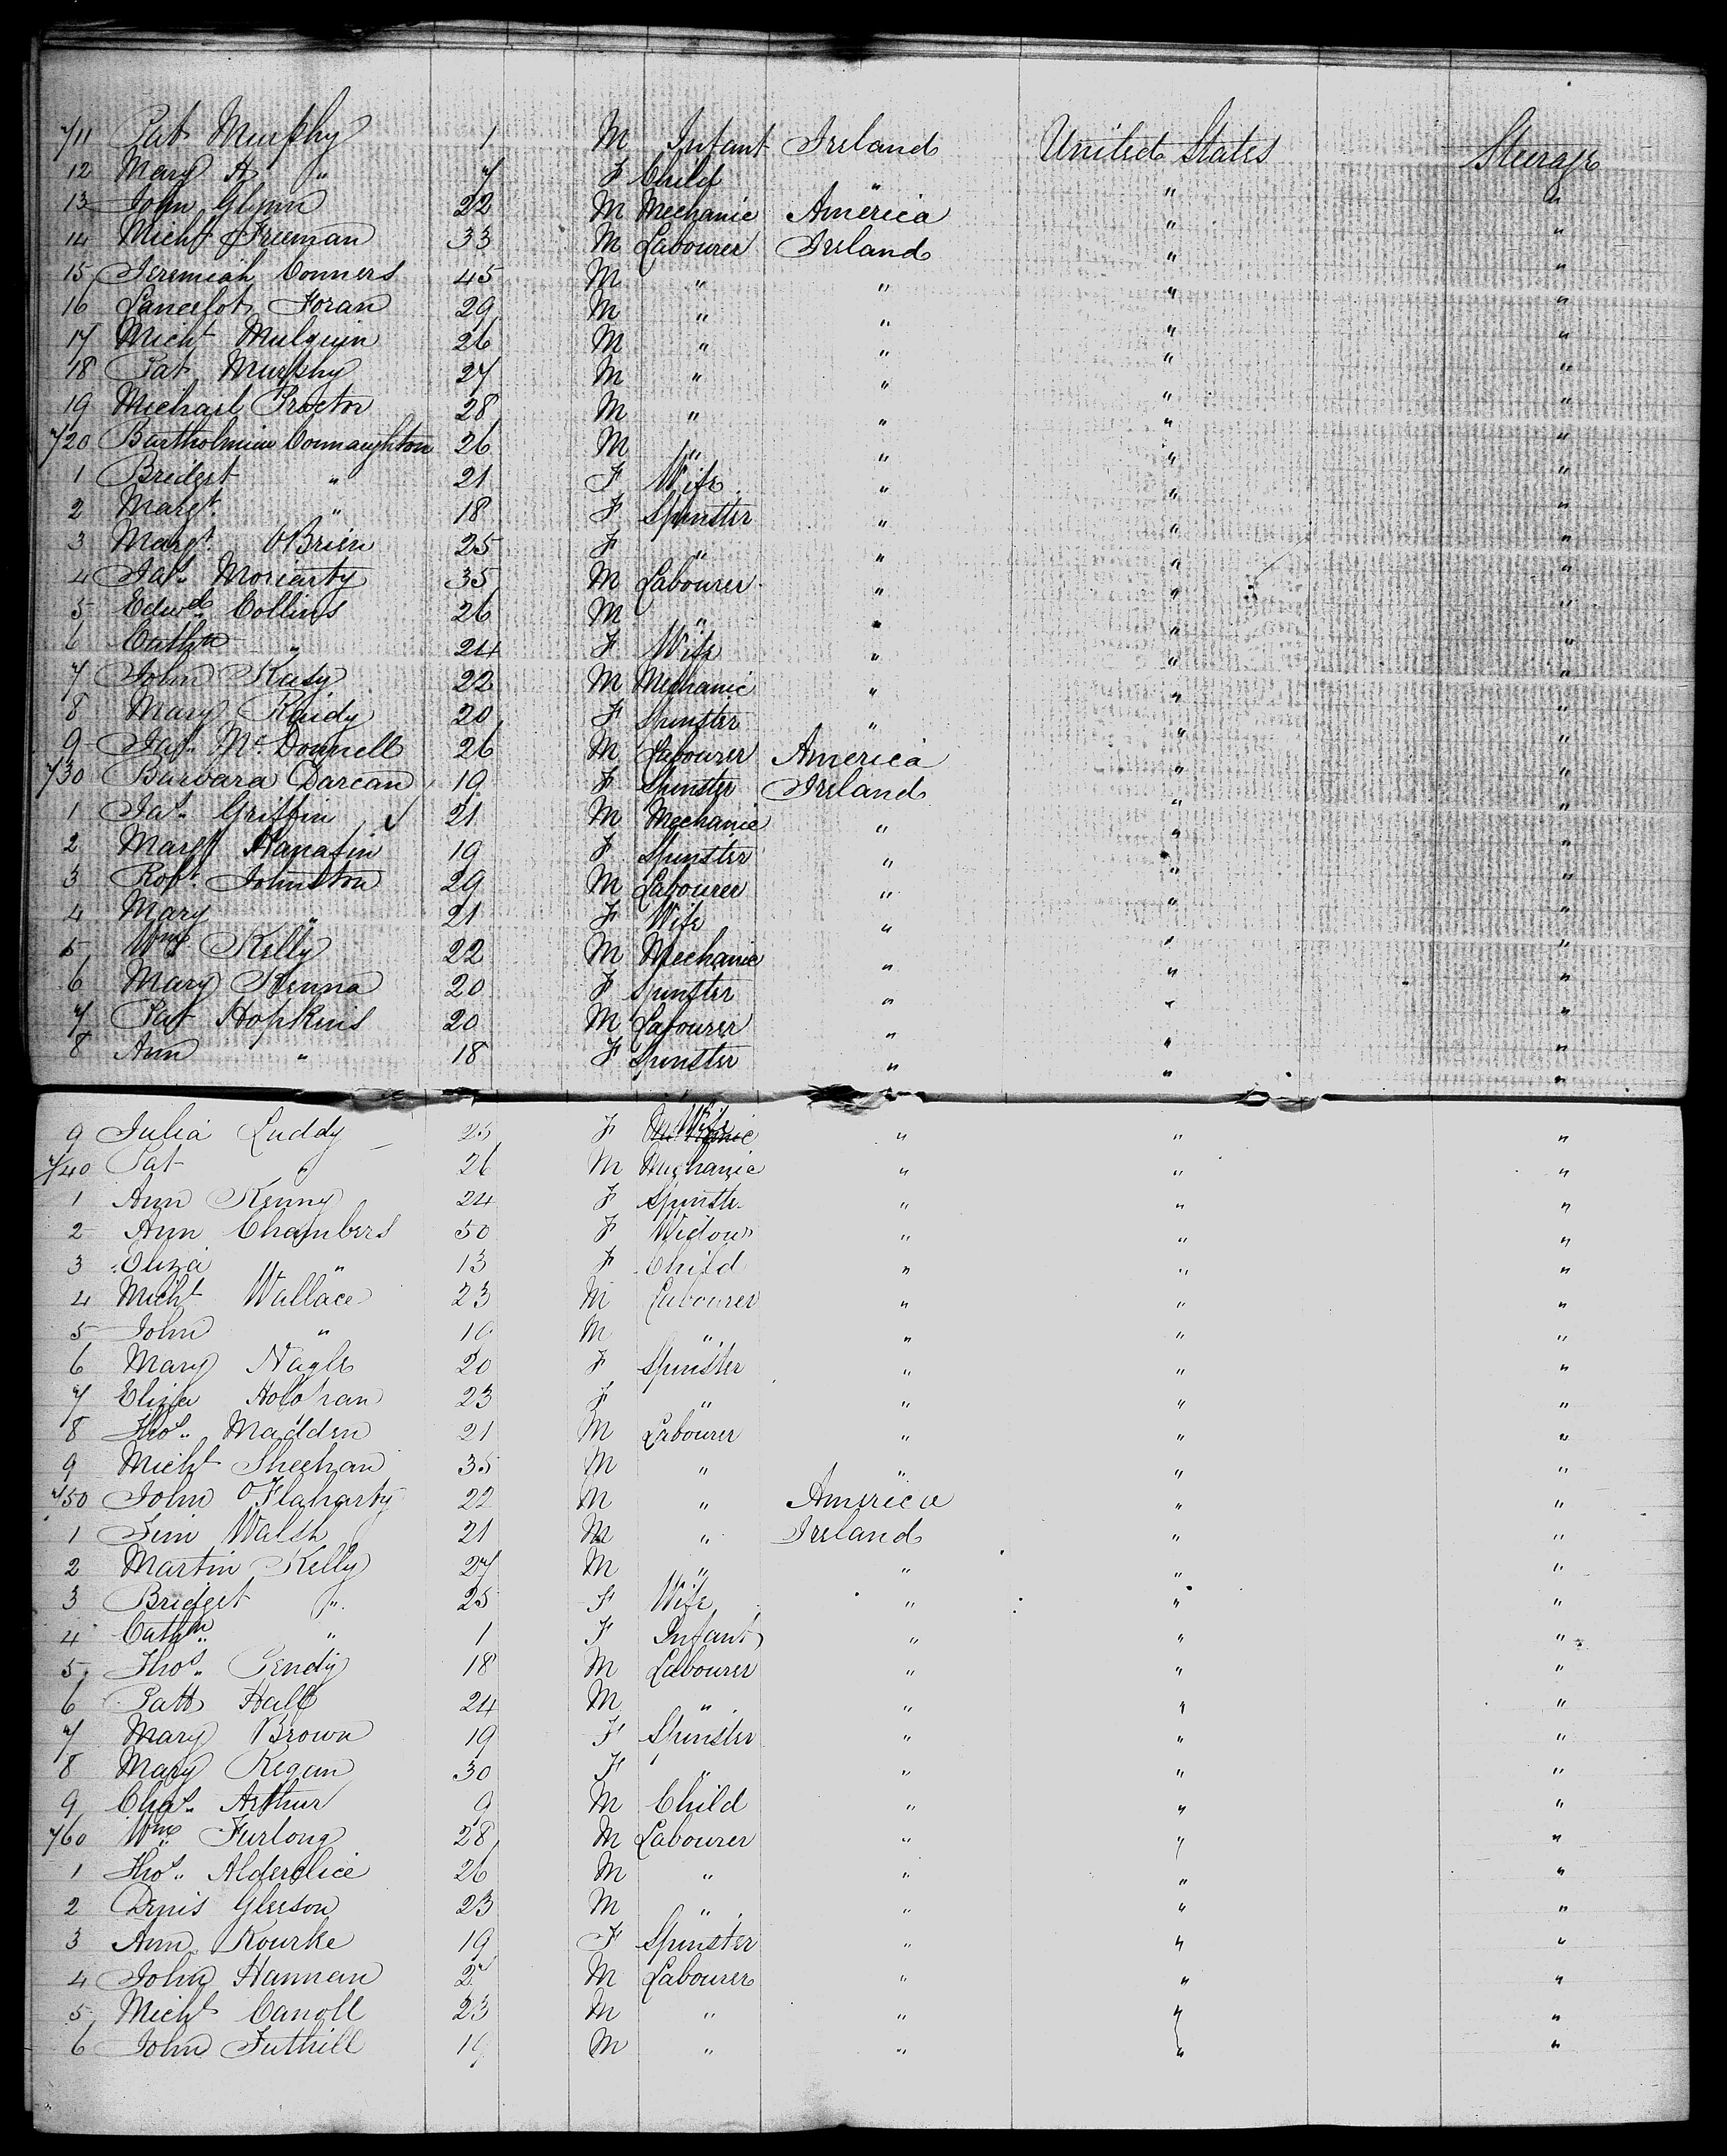 711 Pat Murphy 1 M Infant Ireland United States Steerage
12 Mary A " 7 F Child " " "
13 John Glynn 22 M Mechanic America " "
14 Michl Freeman 33 M Labourer Ireland " "
15 Jeremiah Conners 45 M " " " "
16 Lancelot Foran 29 M " " " "
17 Michl Mulquin 26 M " " " "
18 Pat Murphy 27 M " " " "
19 Michael Proctor 28 M " " " "
720 Bartholmew Connaughton 26 M " " " "
1 Bridget " 21 F Wife " " "
2 Margt. " 18 F Spinster " " "
3 Margt. OBrien 25 F " " " "
4 Jas. Moriarty 35 M Labourer " " "
5 Edwd. Collins 26 M " " " "
6 Cathn " 24 F Wife " " "
7 John 22 M Mechanic " " "
8 Mary Reidy 20 F Spinster " " "
9 Jas. Mc.Donnell 26 M Labourer America " "
730 Barbara Darcan 19 F Spinster Ireland " "
1 Jas. Griffin ✓ 21 M Mechanic " " "
2 Margt Hanafin 19 F Spinster " " "
3 Robt. Johnston 29 M Labourer " " "
4 Mary " 21 F Wife " " "
5 Wm Kelly 22 M Mechanic " " "
6 Mary Kenna 20 F Spinster " " "
7 Pat Hopkins 20 M Labourer " " "
8 Ann " 18 F Spinster " " "
9 Julia Luddy 25 F Wife " " "
740 Pat " 26 M Mechanic " " "
1 Ann Kenny 24 F Spinster " " "
2 Ann Chambers 50 F Widow " " "
3 Eliza " 13 F Child " " "
4 Michl Wallace 23 M Labourer " " "
5 John " M " " " "
6 Mary Nagle 20 F Spinster " " "
7 Eliza Holohan 23 F " " " "
8 Thos. Madden 21 M Labourer " " "
9 Michl Sheehan 35 M " " " "
750 John OFlaharty 22 M " America " "
1 Jim Walsh 21 M " Ireland " "
2 Martin Kelly 27 M " " " "
3 Bridget " 25 F Wife " " "
4 Cathn. " 1 F Infant " " "
5 Thos. 18 M Labourer " " "
6 Patt Hall 24 M " " " "
7 Mary Brown 19 F Spinster " " "
8 Mary Regan 30 F " " " "
9 Chas. Arthur 9 M Child " " "
760 Wm Furlong 28 M Labourer " " "
1 Thos. Alderdice 26 M " " " "
2 Denis Gleeson 23 M " " " "
3 Ann Rourke 19 F Spinster " " "
4 John Hannan M Labourer " " "
5 Michl Carroll 23 M " " " "
6 John Tuthill 19 M " " " "